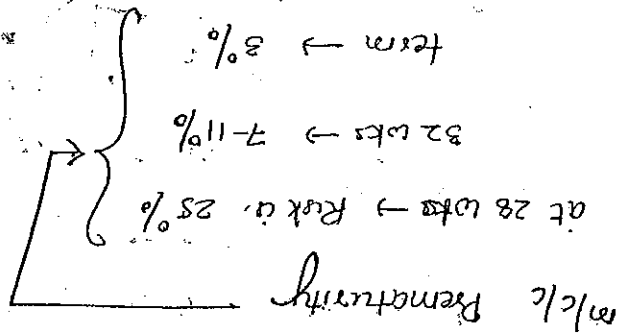 m/c/c Prematurity
at 28 wks → Risk is 25%
32 wks → 7-11%
term → 3%